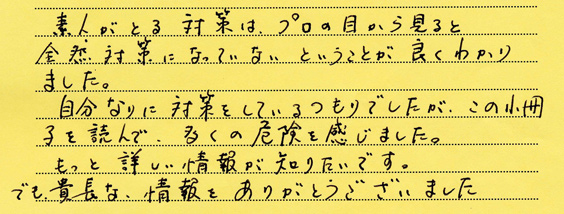 素人がとる対策は、プロの目から見ると
全然対策になっていないということが良くわかり
ました。
自分なりに対策をしているつもりでしたが、この小冊
子を読んで、多くの危険を感じました。
もっと詳しい情報が知りたいです。
でも、貴長な、情報をありがとうございました